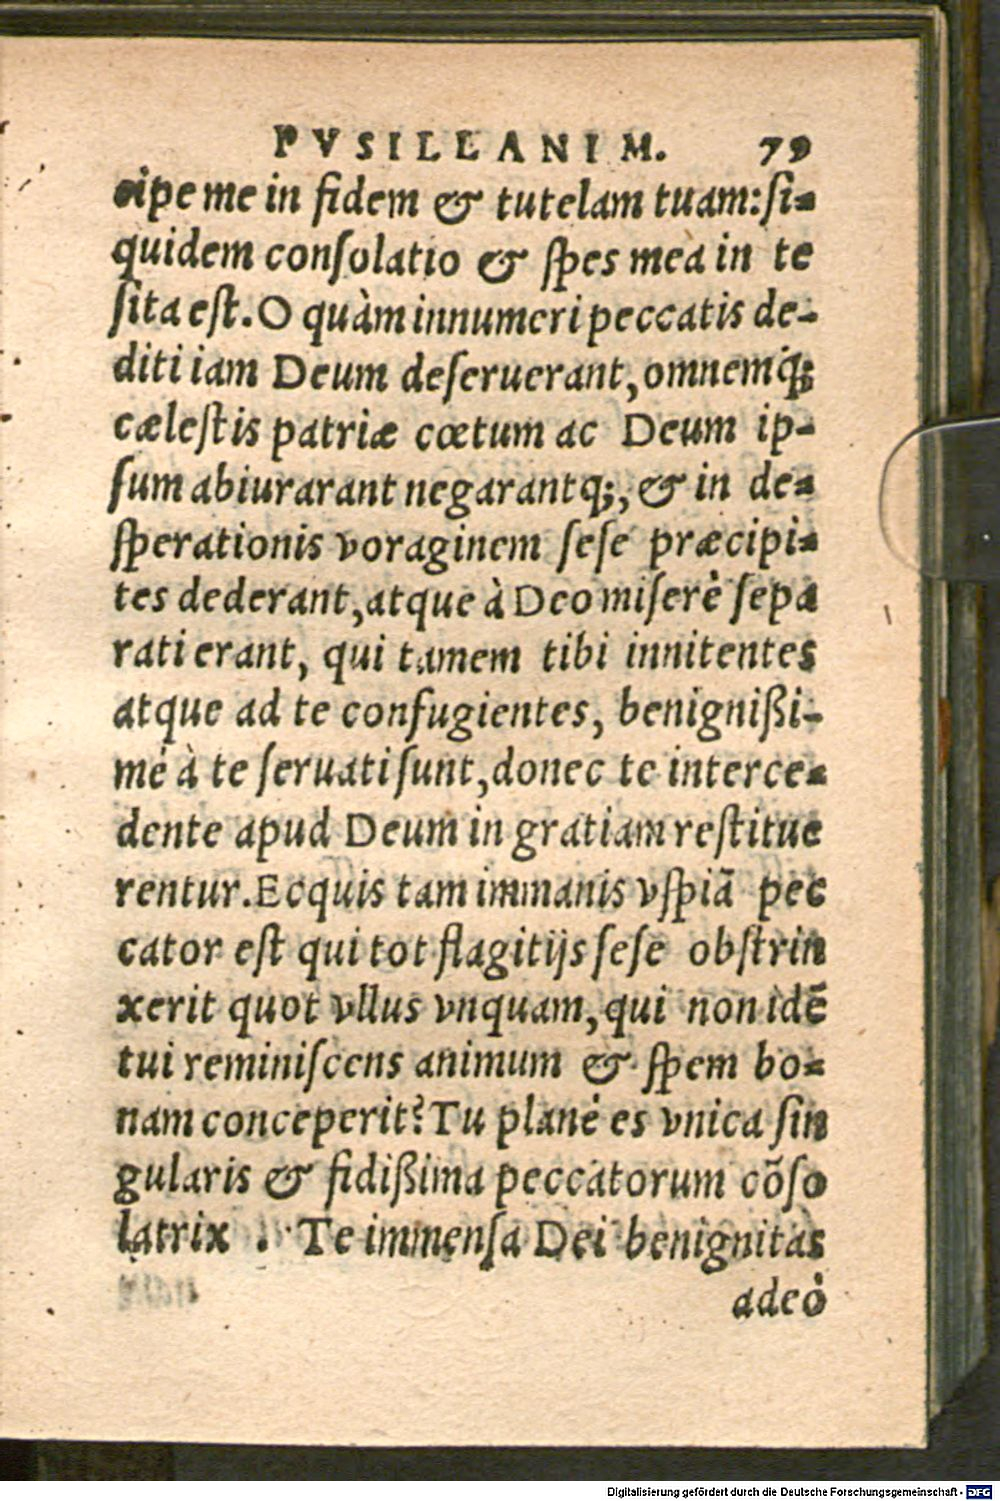 PVSILLANIM. 79
cipe me in fidem & tutelam tuam: si-
quidem consolatio & spes mea in te
sita est. O quàm innumeri peccatis de-
diti iam Deum deseruerant, omnemq́;
cælestis patriæ cœtum ac Deum ip-
sum abiurarant negarantq;, & in de-
sperationis voraginem sese præcipi-
tes dederant, atque à Deo miserè sepa
rati erant, qui tamem tibi innitentes
atque ad te confugientes, benignißi-
mè à te seruati sunt, donec te interce-
dente apud Deum in gratiam restitue
rentur. Ecquis tam immanis vspiā pec
cator est qui tot flagitijs sese obstrin
xerit quot vllus vnquam, qui non idē
tui reminiscens animum & spem bo-
nam conceperit? Tu planè es vnica sin
gularis & fidißima peccatorum cōso
latrix. Te immensa Dei benignitas
adeò
Digitalisierung gefördert durch die Deutsche Forschungsgemeinschaft - DFG